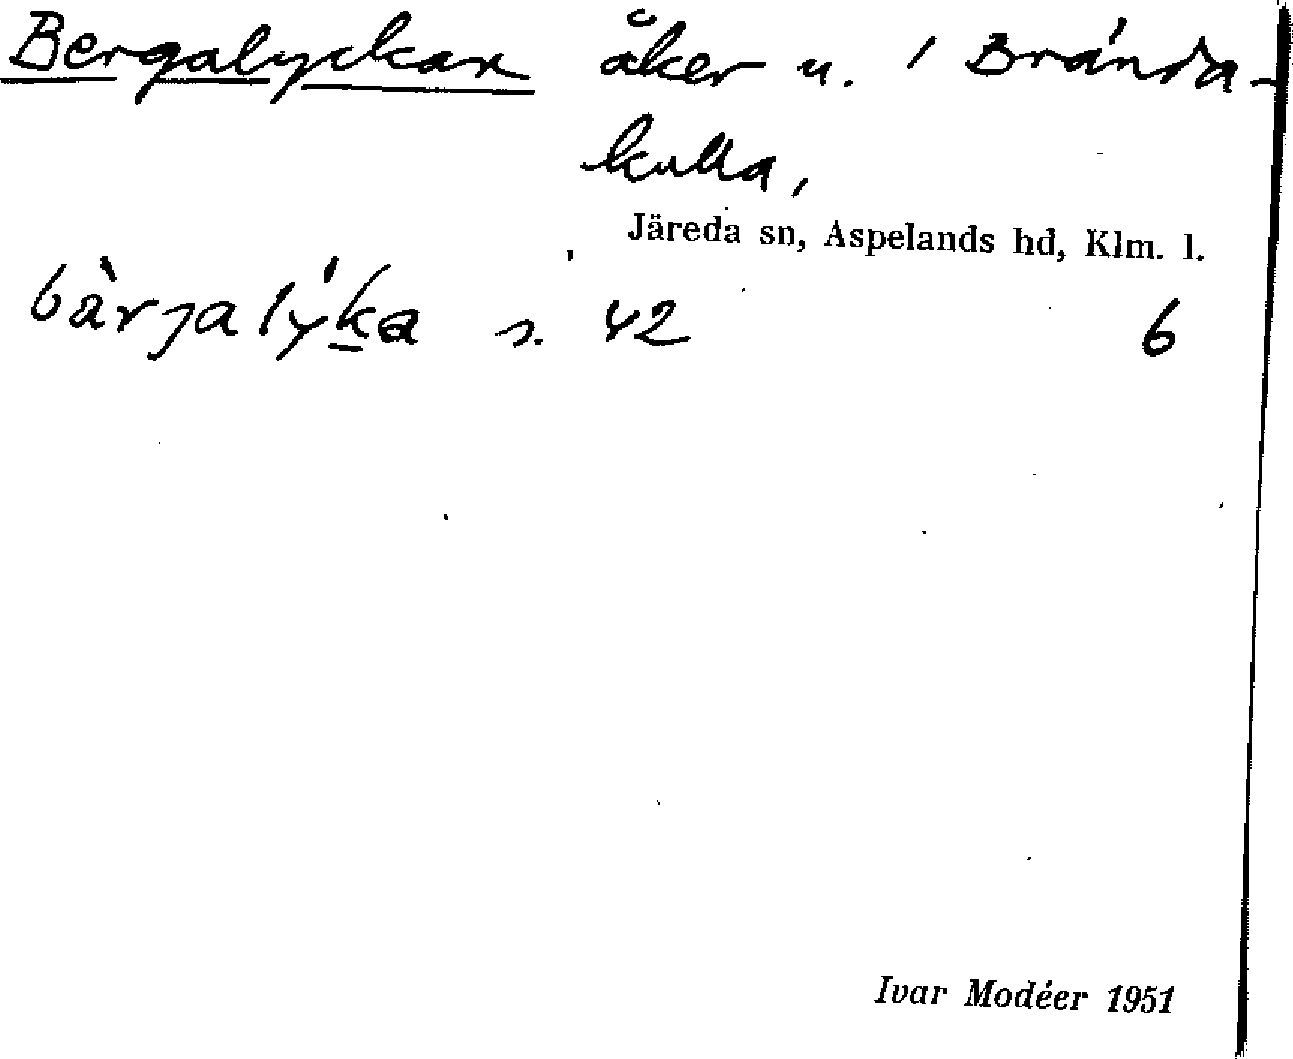 Bergalyckan åker u. i Brända-
kulla,
Järeda sn, Aspelands hd, Klm. l.
bàrjalýka s. 42 6
Ivar Modéer 1951